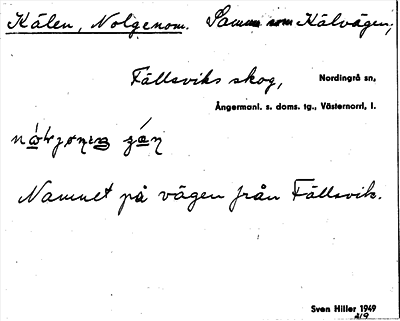 Kälen, Nolgenom. Samma som Kälvägen,
Fällsviks skog, Nordingrå sn,
Ångermanl. s. doms. tg., Västernorrl. l.
Namnet på vägen från Fällsvik.
Sven Hiller 1949